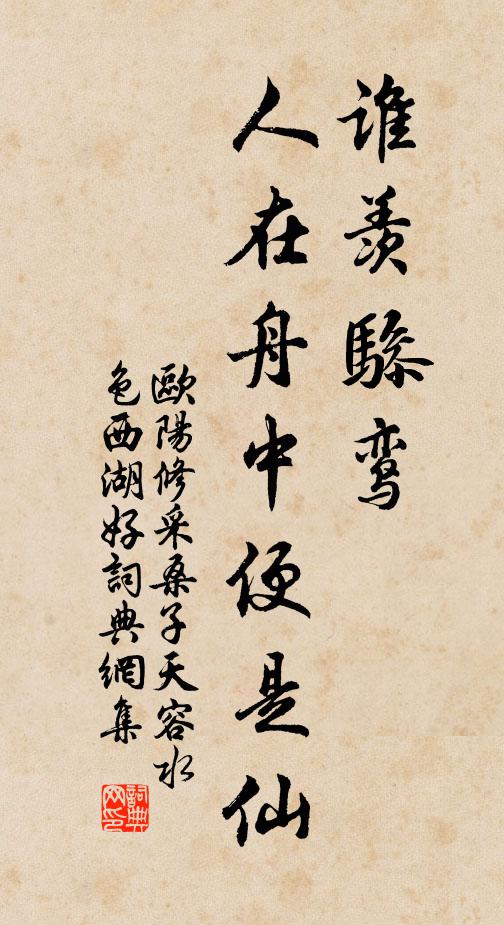 谁羡驂鸾
人在舟中便是仙
歐陽修采桑子天容水
色西湖好詞典網集
詞典网印